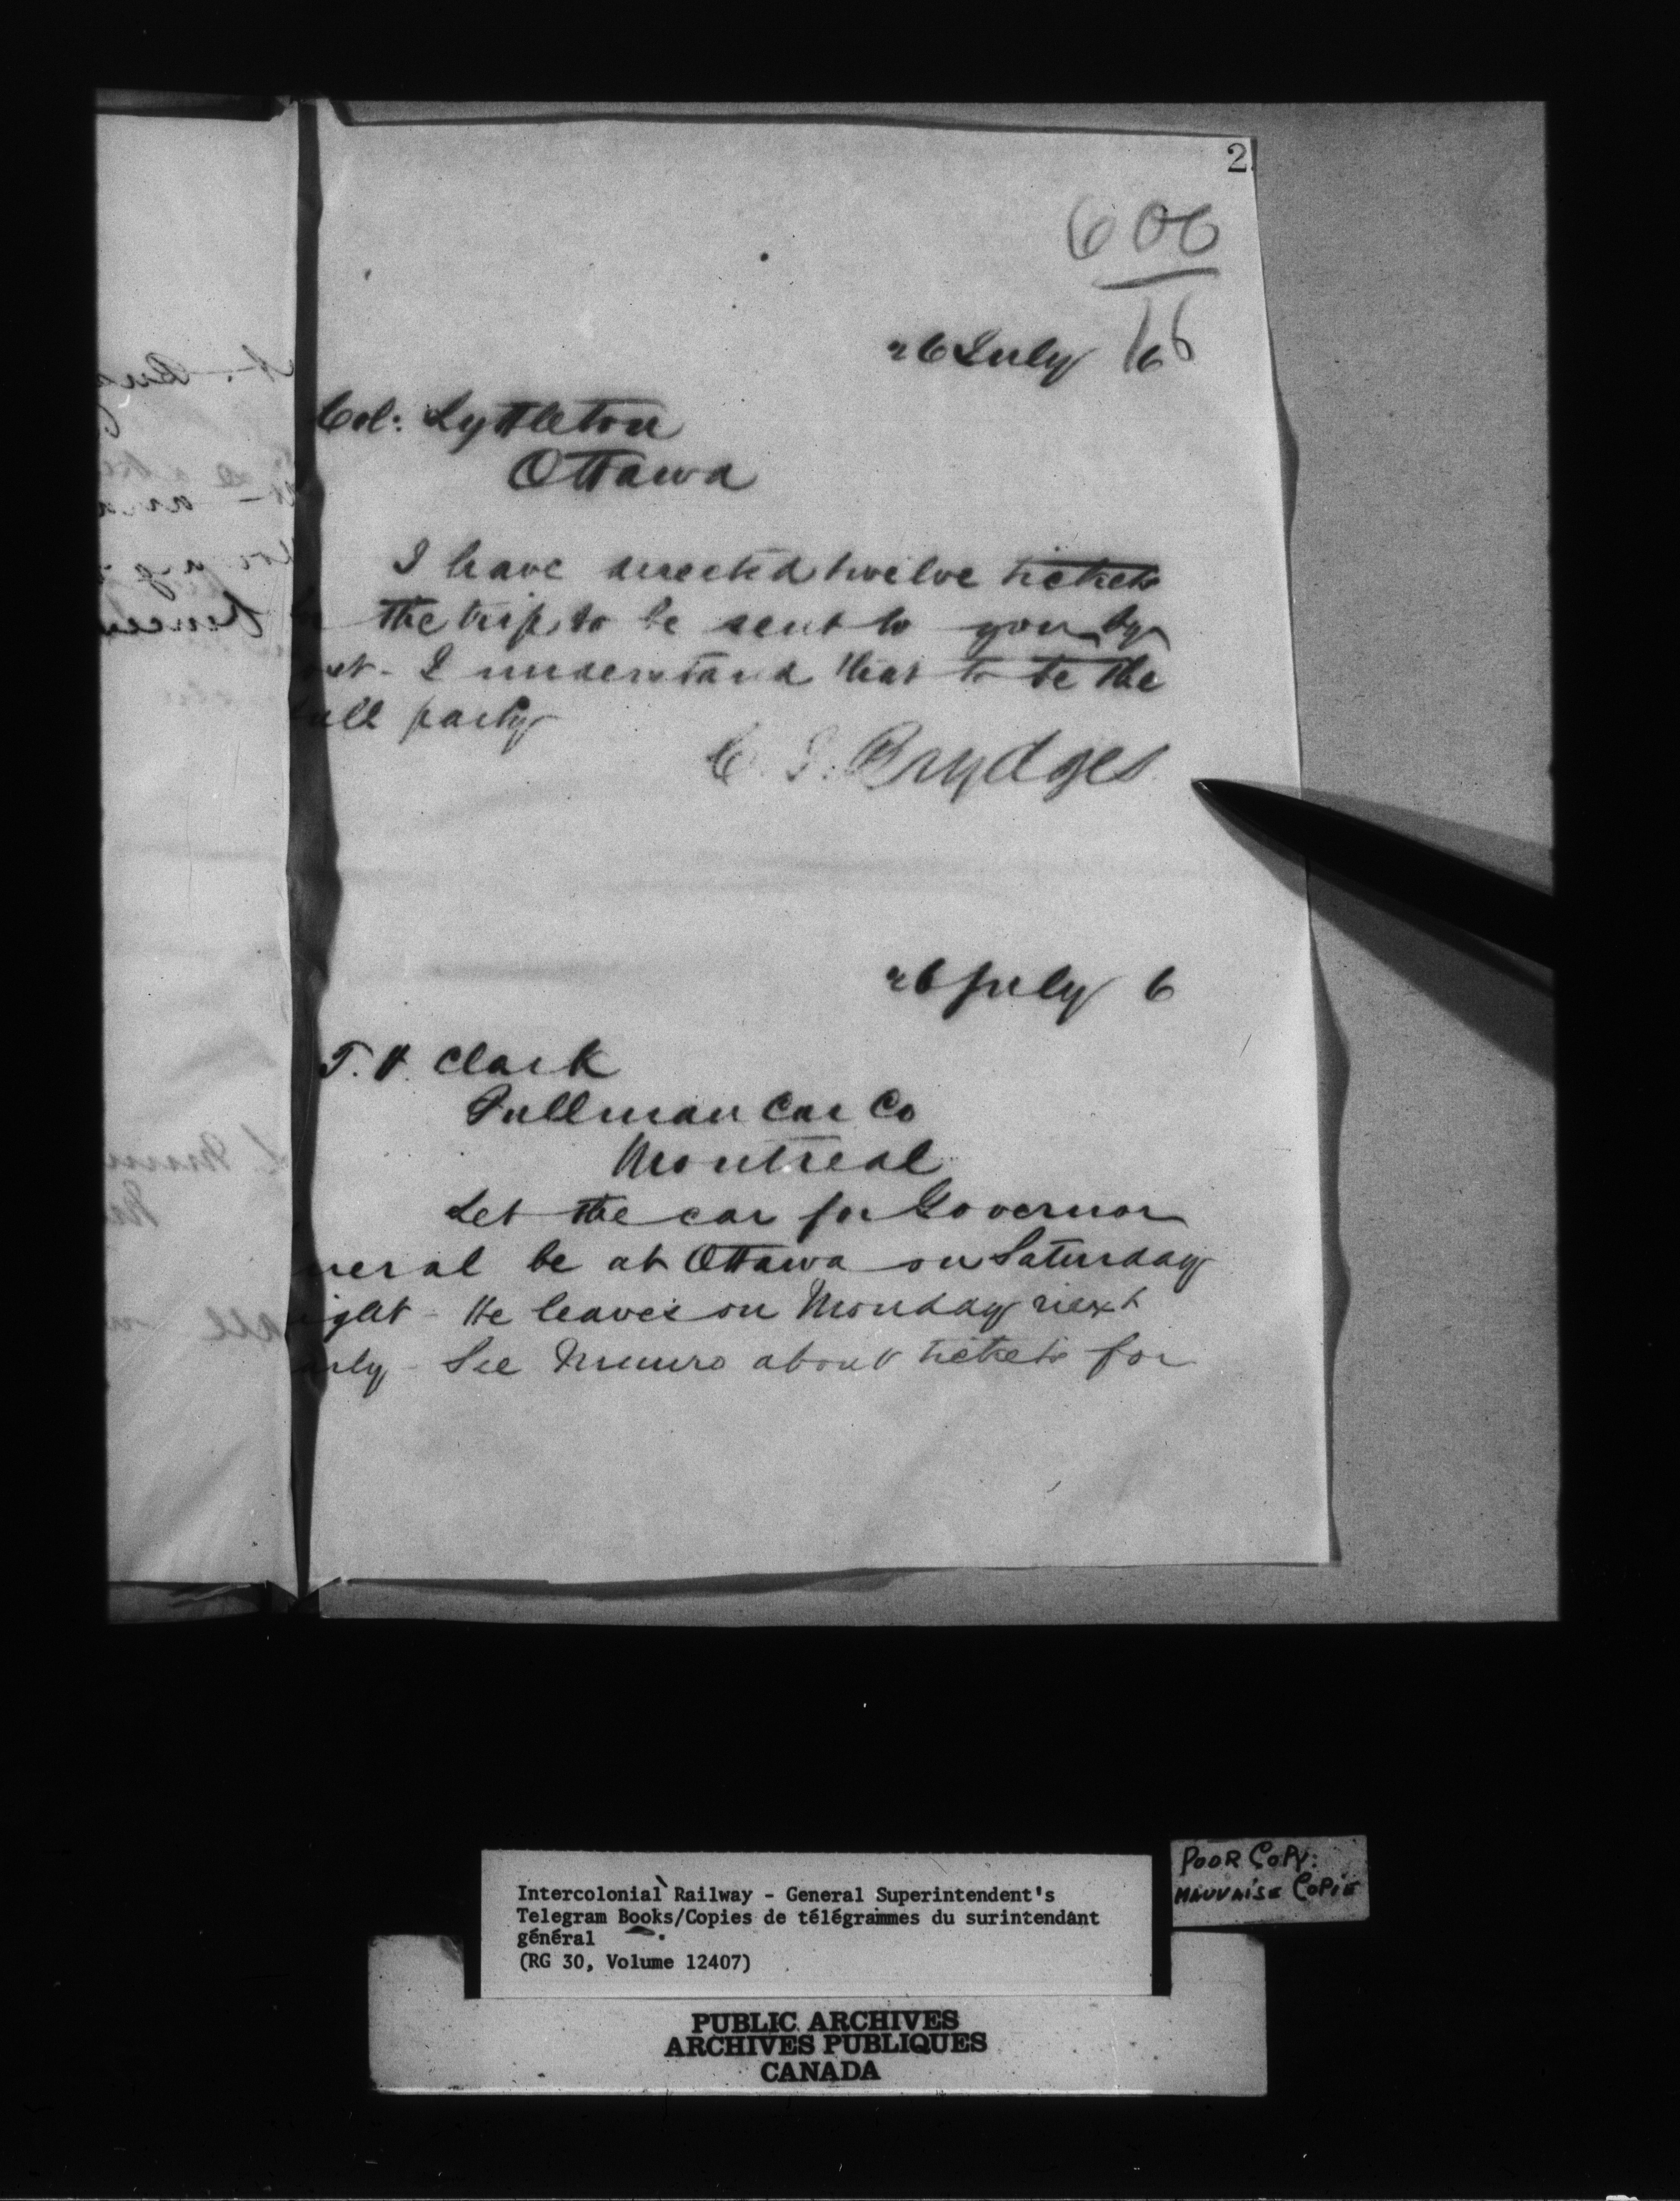 2
606
16
26 July 6
Col: Lyttleton
Ottawa
I have directed twelve tickets
the trip to be sent to you by
ost - I understand that to be the
ull party
C. J. Brydges
26 July 6
T. H. Clark
Pullman Car Co
Montreal
Let the car for Governor
neral be at Ottawa on Saturday
ight - He leaves on Monday next
arly - See Munro about tickets for
POOR COPY:
MAUVAISE COPIE
Intercolonial Railway - General Superintendent's
Telegram Books/Copies de télégrammes du surintendant
général
(RG 30, Volume 12407)
PUBLIC ARCHIVES
ARCHIVES PUBLIQUES
CANADA